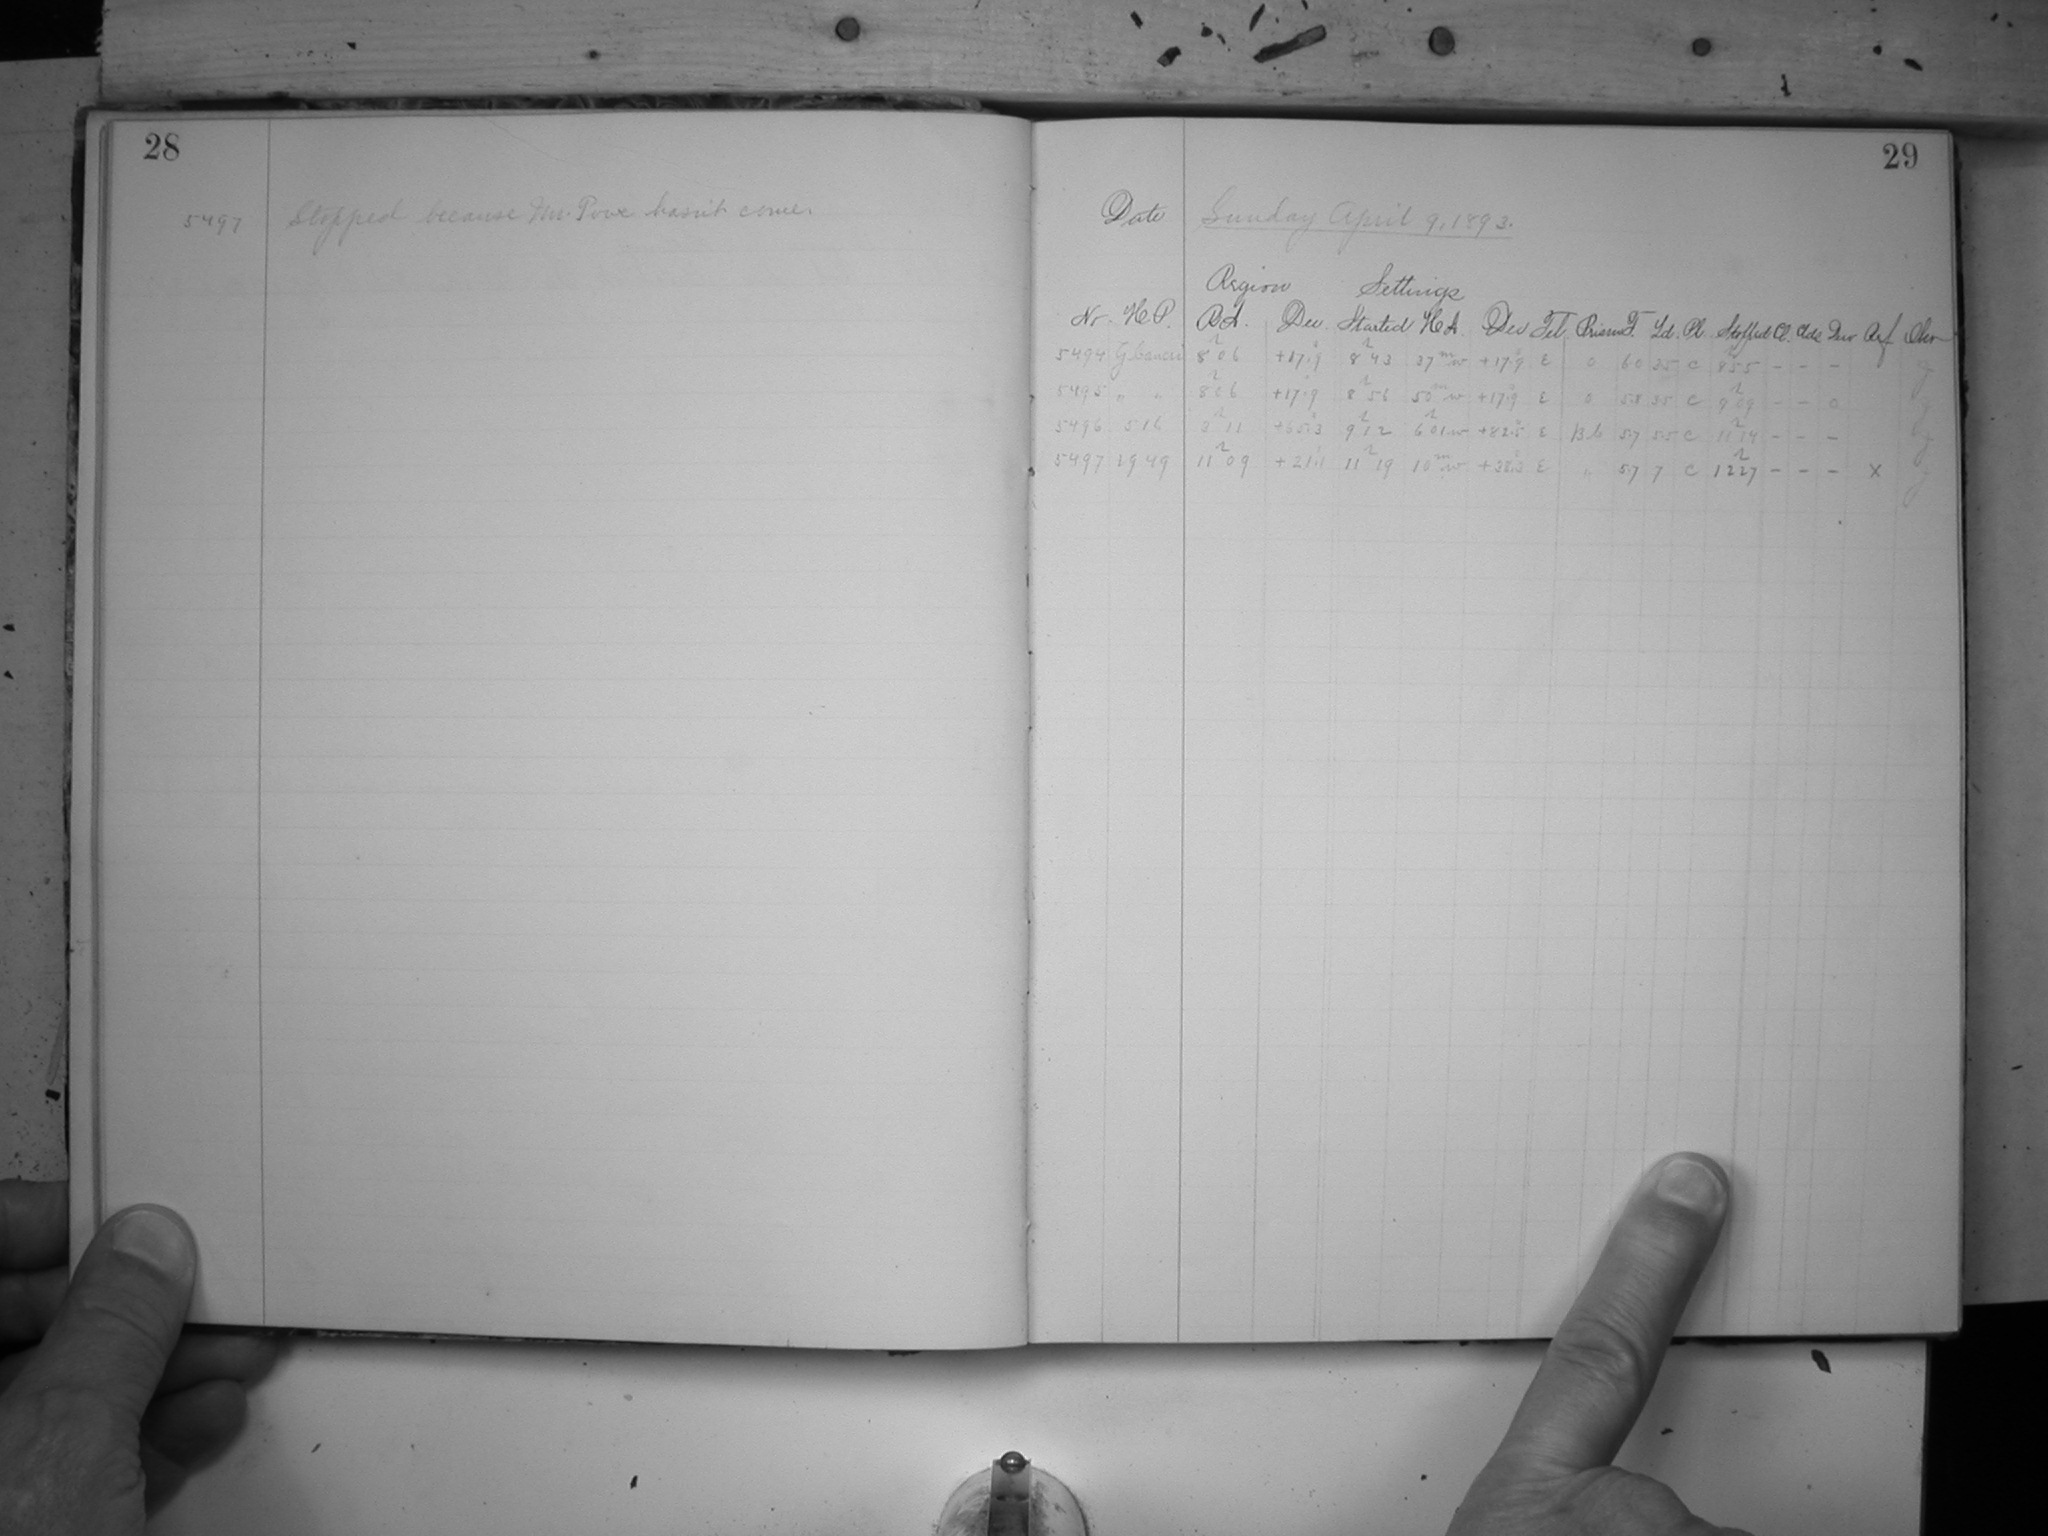 28
5497 Stopped because Mr. hasn't come.
29
Date Sunday April 9, 1893.
Region Settings
Nr. H.P. R.A. Dec. Started H.A. Dec Tel. Prism T. Ld. Pl. Stopped Cl. Dur Obsr
5494 8h06 +17°.9 8h43 37m w +17°.9 E 0 60 35 C 8h55 - - -
5495 " " 8h06 +17°.9 8h56 50m w +17°.9 E 0 58 35 C 9h09 - - 0
5496 516 +65°.3 9h12 6h01 w +82°.5 E 57 55 C 11h14 - - -
5497 1949 11h09 11h19 10m w E " 57 7 C 12h27 - - - X